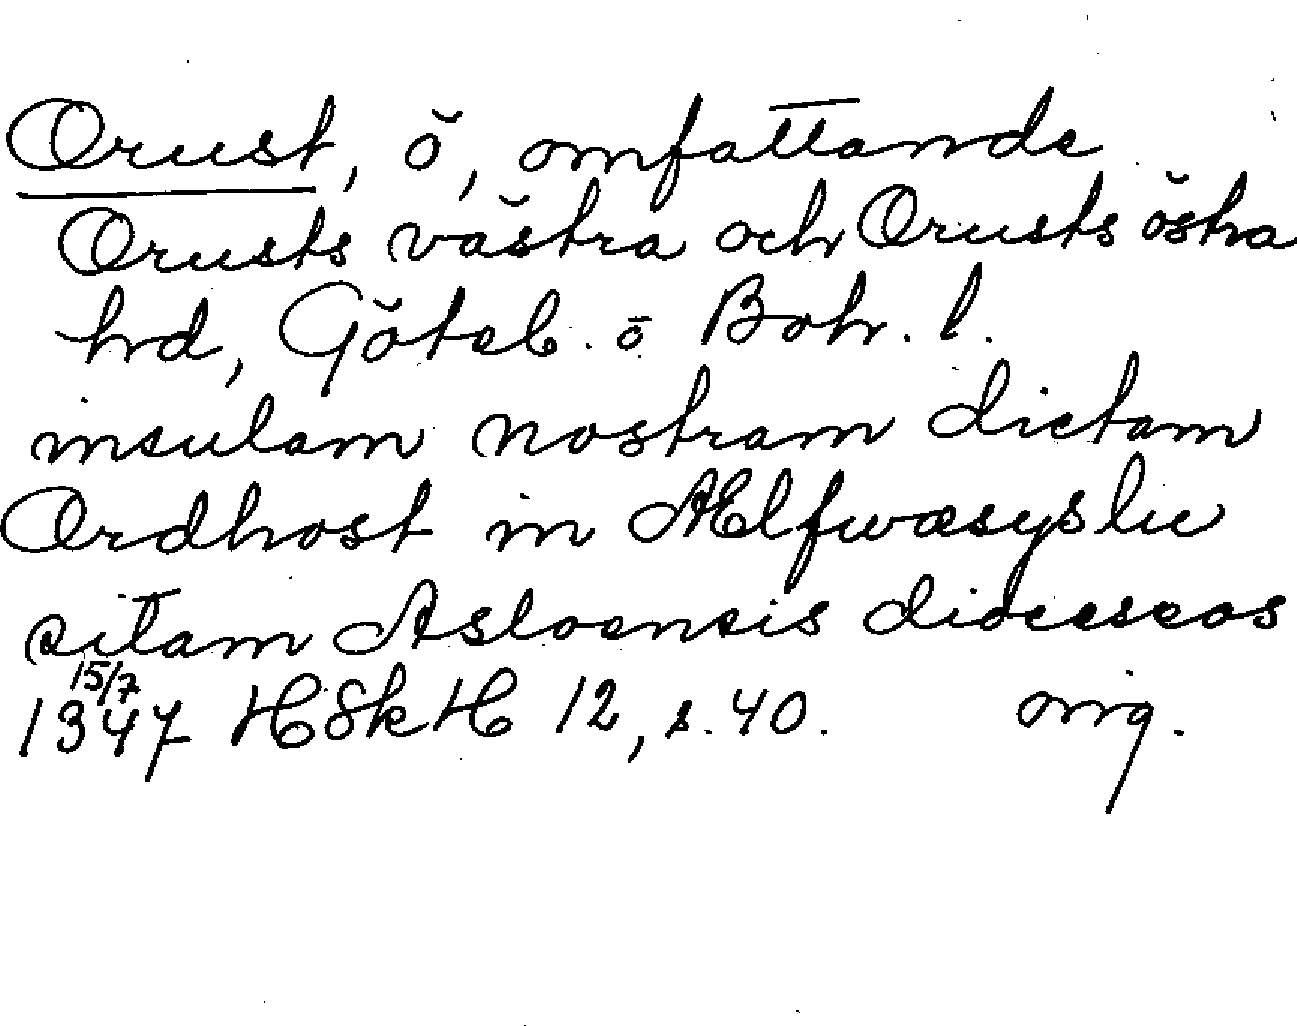 Orust, ö, omfattande
Orusts västra och Orusts östra
hrd, Göteb. o Boh. l.
insulam nostram dictam
Ordhost in Ælfwæsyslu
sitam Asloensis dioceseos
15/7
1347 HSkH 12, s. 40. orig.